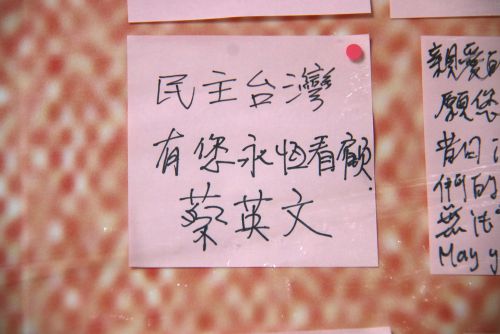 民主台灣
有您永恆看顧.
蔡英文
親愛的
願您
昔日
們的
無法
May y